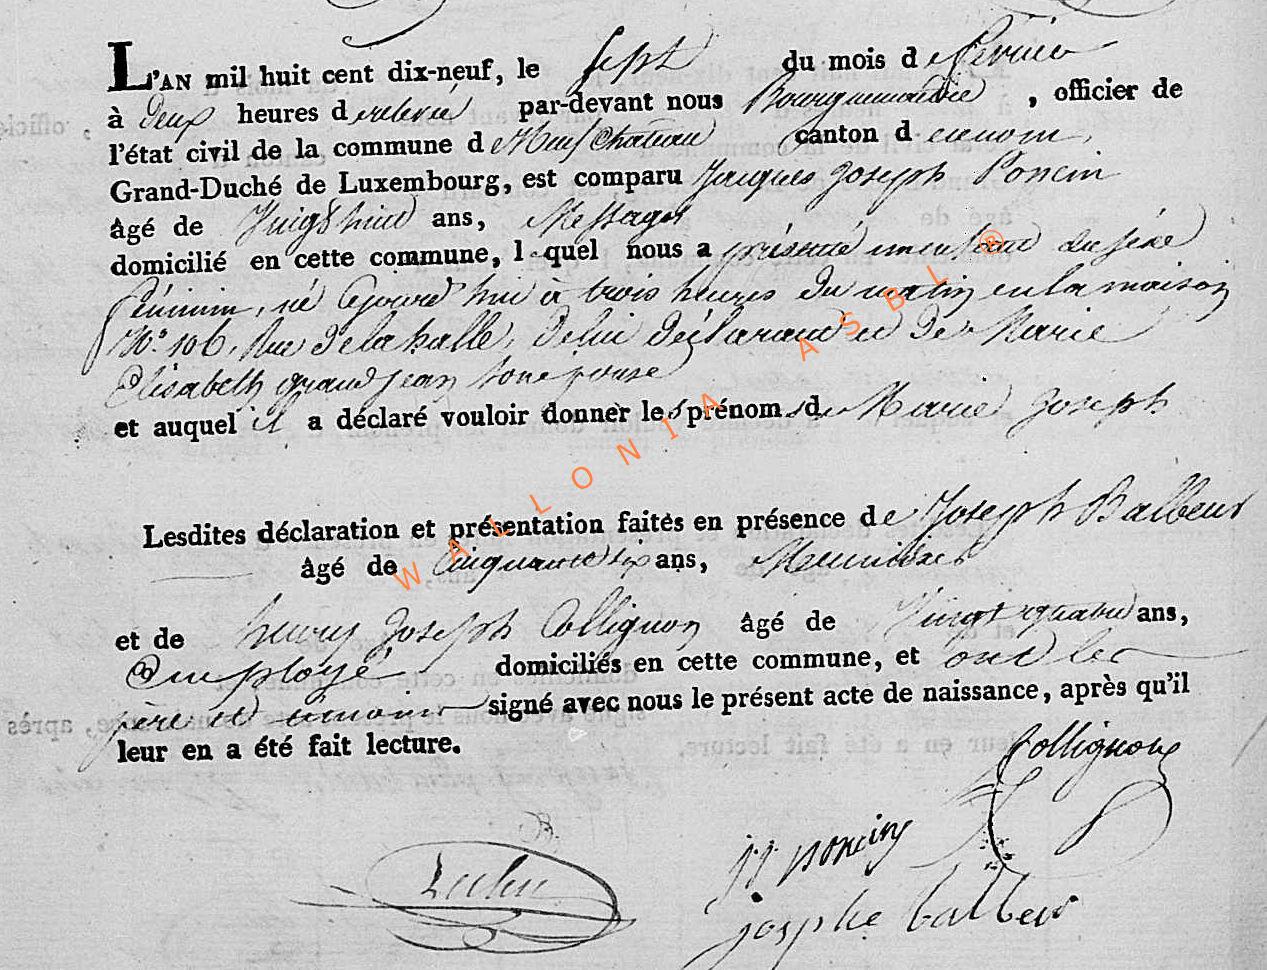 L'AN mil huit cent dix-neuf, le sept du mois de février
à deux heures de relevée par-devant nous Bourguemaitre, officier de
l'état civil de la commune de Neufchateau canton de ce nom,
Grand-Duché de Luxembourg, est comparu Jacques Joseph Poncin
âgé de Vingt huit ans, Messager
domicilié en cette commune, lequel nous a présenté un enfant du sexe
féminin, né aujourd'hui à trois heures du matin en la maison
No. 106, Rue de la halle, de lui déclarant et de Marie
Elisabeth grand jean son épouse
et auquel il a déclaré vouloir donner les prénoms de Marie Joseph
Lesdites déclaration et présentation faites en présence de Joseph Balbeur
âgé de Cinquante six ans, Meunier
et de henry Joseph Collignon âgé de Vingt quatre ans,
Employé domiciliés en cette commune, et ont les
père et temoins signé avec nous le présent acte de naissance, après qu'il
leur en a été fait lecture.
Collignon
J J poncin
josphe balbeur
WALLONIA ASBL ®